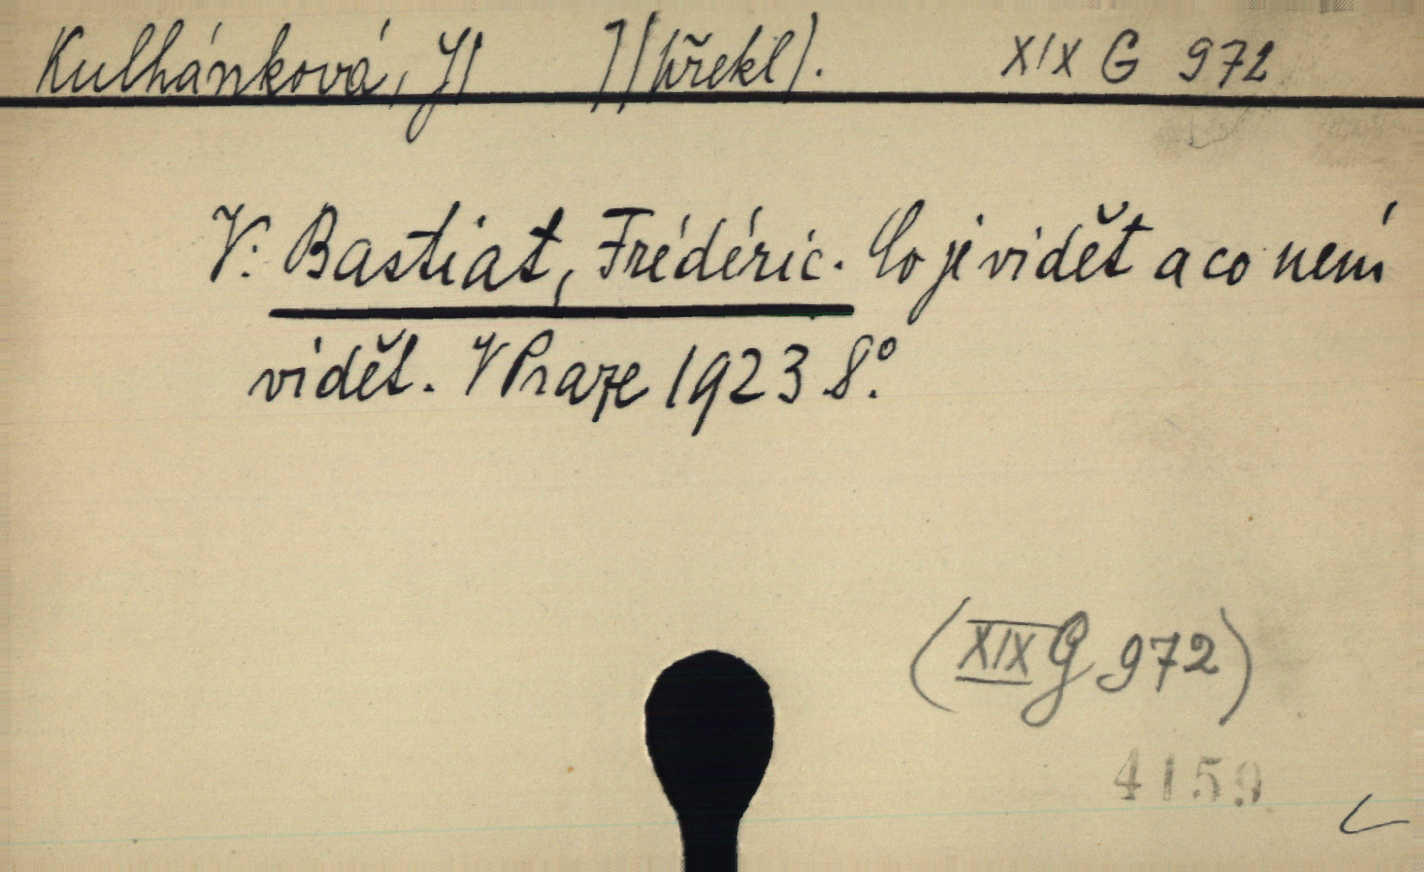 Kulhánková, J[ ](překl). XIX G 972
V: Bastiat, Frédéric. Co je vidět a co není
vidět. V Praze 1923 8°.
(XIX G 972)
4159